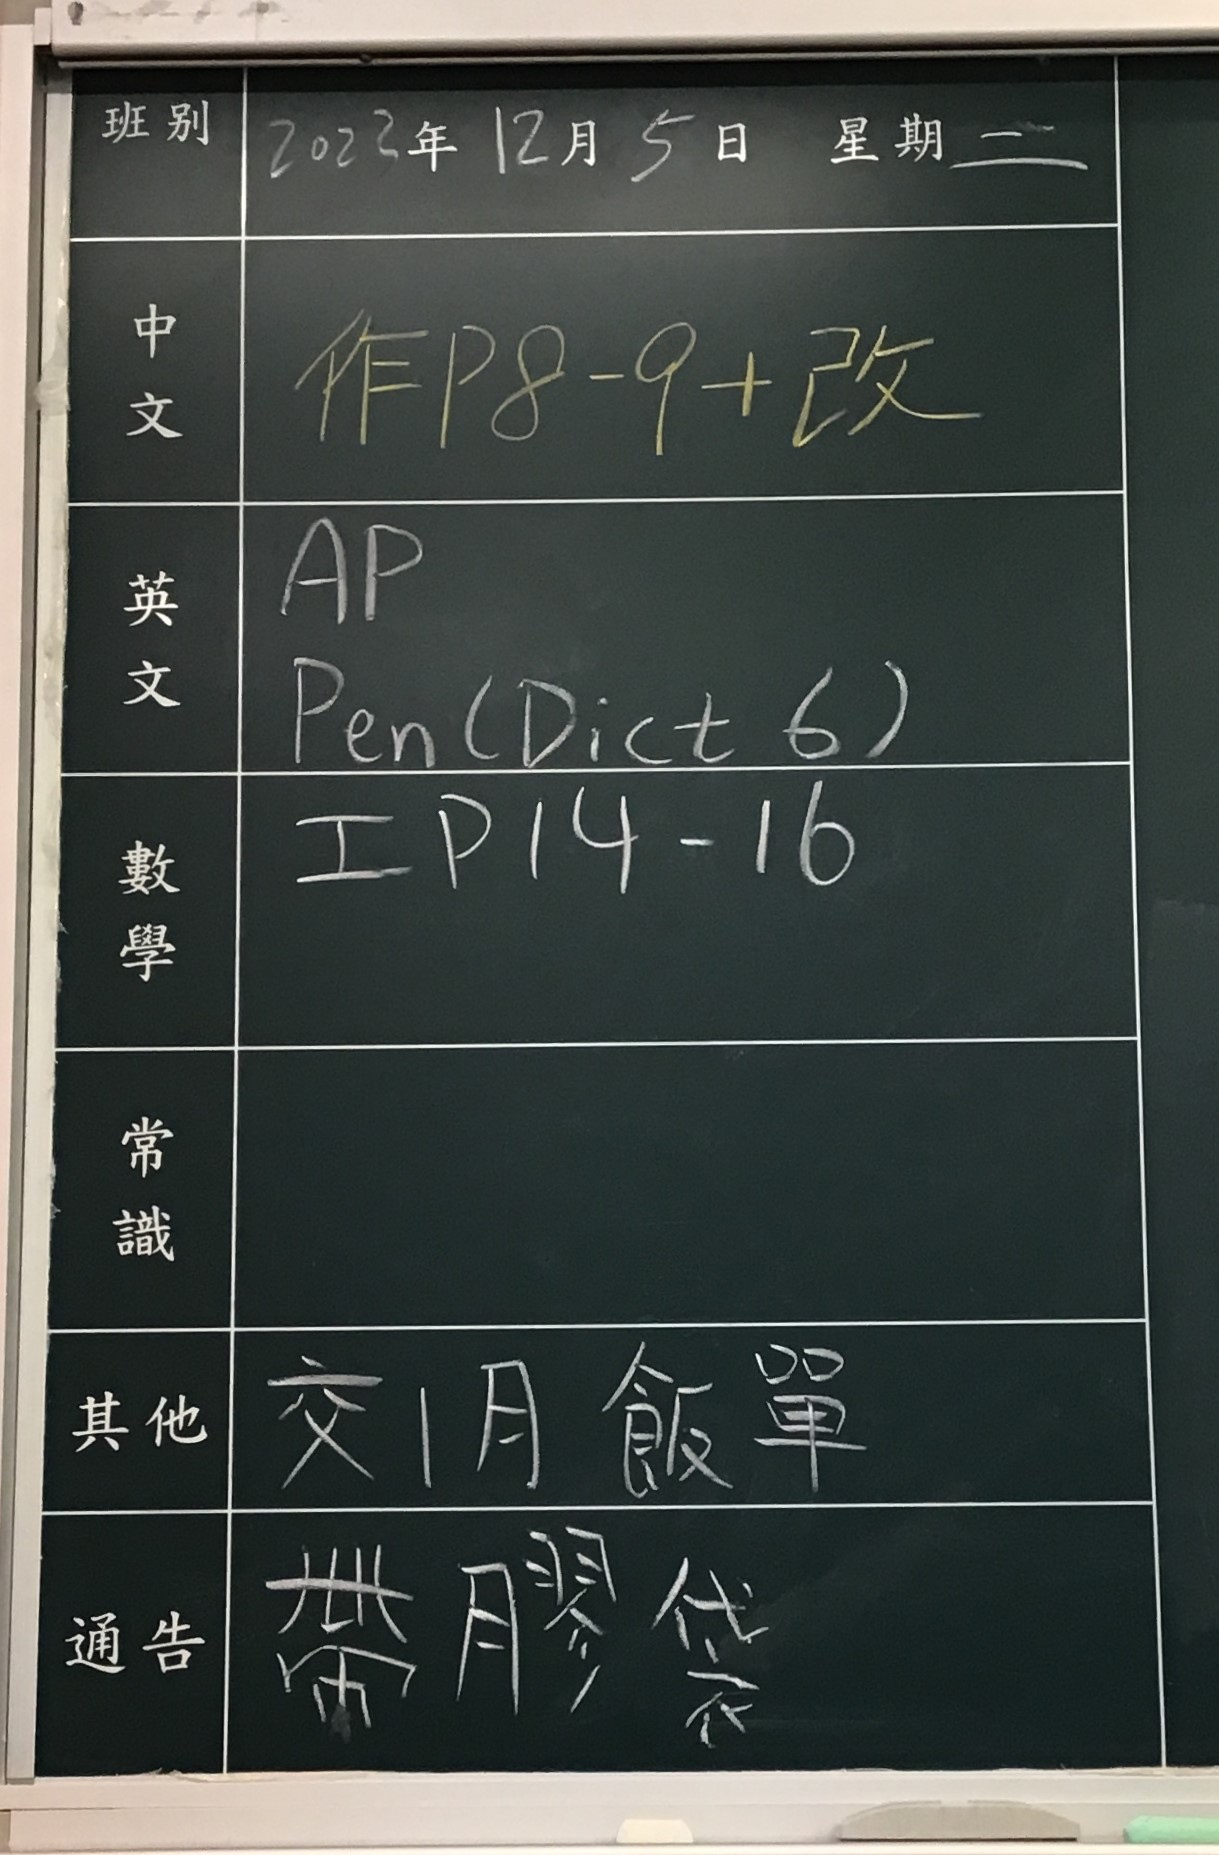 班別 2023年 12月 5日 星期二
中文 作P8-9+改
英文 AP
Pen(Dict 6)
數學 工P14-16
常識
其他 交1月飯單
通告 帶膠袋